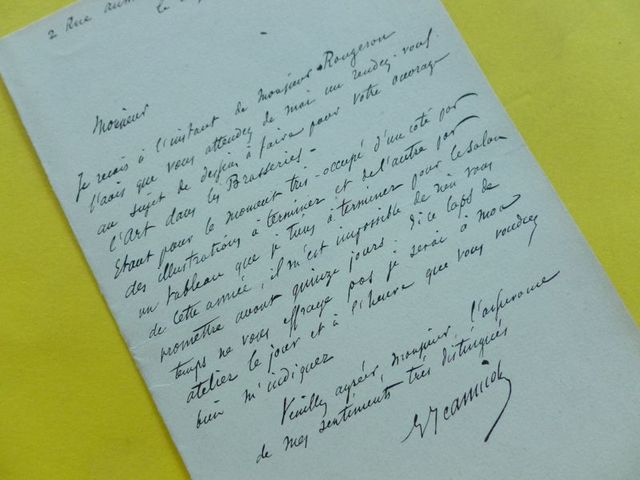 2 Rue
le
Monsieur
Je reçois à l'instant de Monsieur Rougeron
l'avis que vous attendez de moi un rendez-vous
au sujet de dessins à faire pour votre ouvrage
l'Art dans les Brasseries -
Etant pour le moment très-occupé d'un coté par
des illustrations à terminer et de l'autre par
un tableau que je tiens à terminer pour le Salon
de cette année, il m'est impossible de rien vous
promettre avant quinze jours. Si ce laps de
temps ne vous effraye pas je serai à mon
atelier le jour et à l'heure que vous voudrez
bien m'indiquer
Veuillez agréer, Monsieur, l'assurance
de mes sentiments très distingués